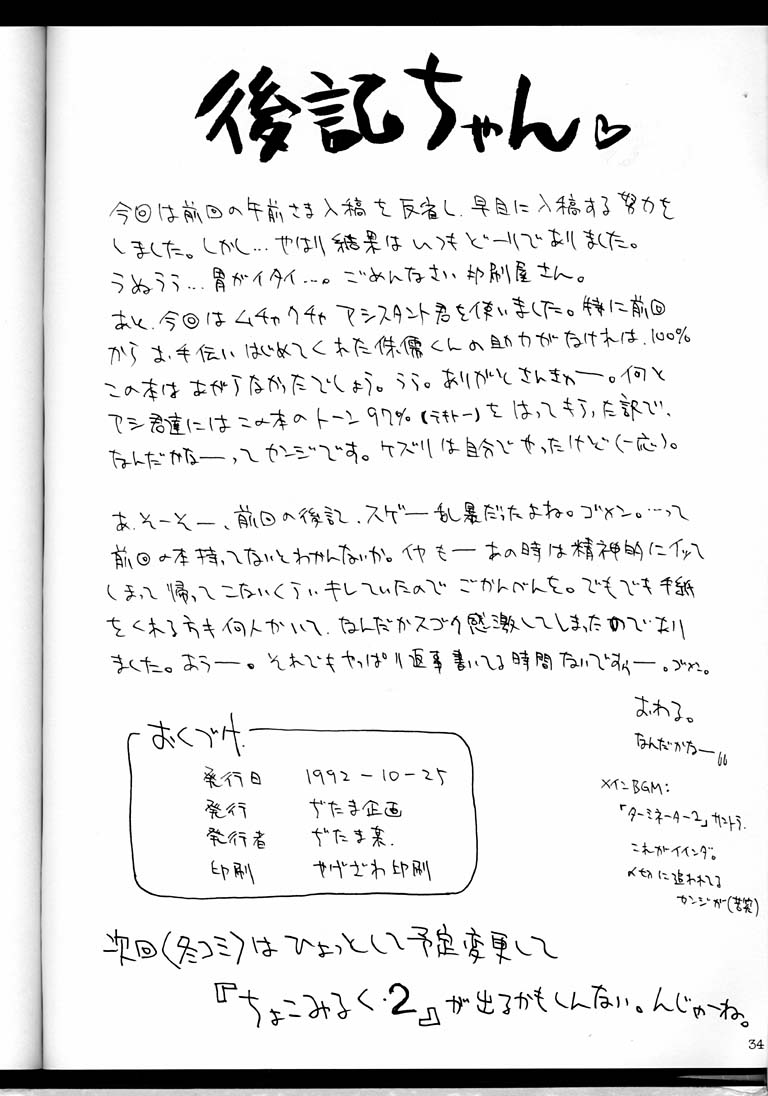 後記ちゃん♡
今回は前回の午前さま入稿を反省し、早目に入稿する努力を
しました。しかし…やはり結果はいつもど〜りでありました。
うぬうう…胃がイタイ…。ごめんなさい印刷屋さん。
あと、今回はムチャクチャアシスタント君を使いました。特に前回
からお手伝いはじめてくれた侏儒くんの助力がなければ、100%
この本はあがらなかったでしょう。うう。ありがとさんきゅー。何と
アシ君達にはこの本のトーン97%(テキトー)をはってもらった訳で、
なんだかなーってカンジです。ケズリは自分でやったけど(一応)。
あ、そーそー、前回の後記、スゲー乱暴だったよね。ゴメン。…って
前回の本持ってないとわかんないか。イヤもーあの時は精神的にイッて
しまって帰ってこないくらいキしていたのでごかんべんを。でもでも手紙
をくれる方も何人かいて、なんだかスゴク感激してしまったのであり
ました。あうー。それでもやっぱり返事書いてる時間ないですぅー。ゴメン。
おわる。
なんだかなー
メインBGM:
「ターミネーター2」サントラ.
これがイインダ。
〆切に追われてる
カンジが(苦笑)
おくづけ.
発行日 1992-10-25
発行 ぢたま企画
発行者 ぢたま某.
印刷 やげざわ印刷
次回(冬コミ)はひょっとして予定変更して
『ちょこみるく・2』が出るかもしんない。んじゃーね。
34